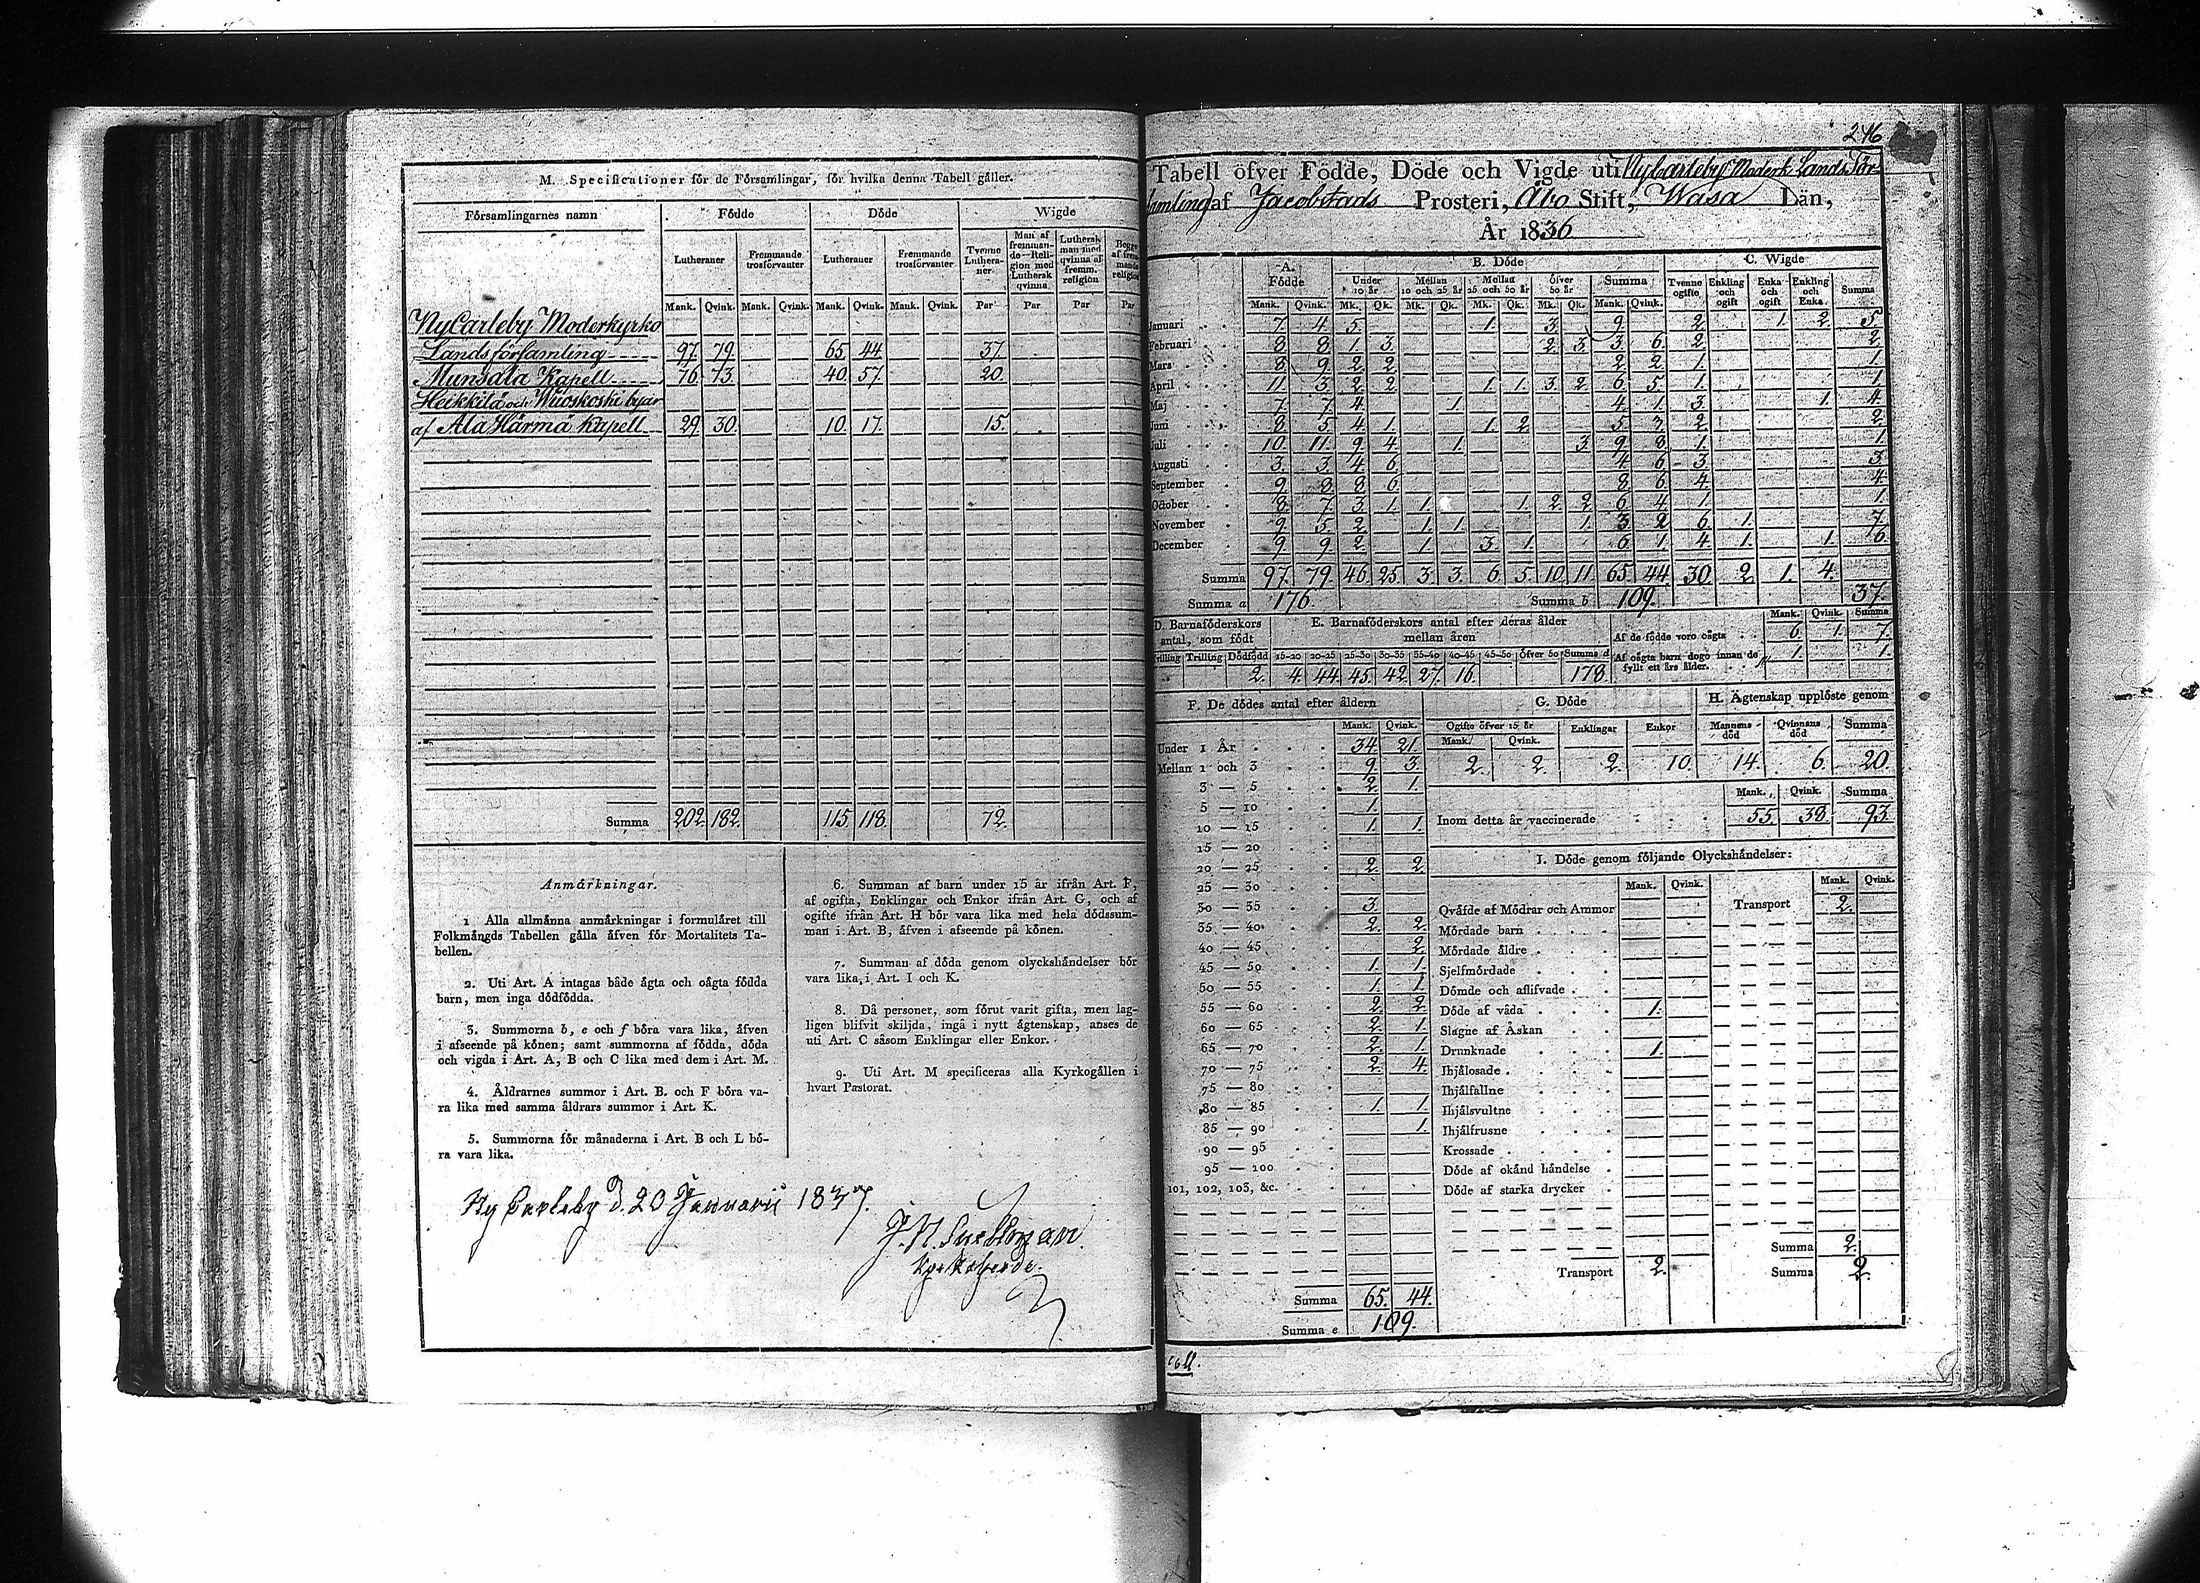 M. Specificationer för de Församlingar, för hvilka denna Tabell gäller.
Församlingarnes namn Födde Döde Wigde
Lutheraner Fremmande trosförvanter Lutheraner Fremmande trosförvanter Tvenne Lutheraner Man af fremmande Religion med Luthersk qvinna Luthersk man med qvinna af fremm. religion
Mank. Qvink. Mank. Qvink. Mank. Qvink. Mank. Qvink. Par Par Par Par
NyCarleby Moderkyrko
Lands församling 97. 79. 65. 44. 37.
Munsala Kapell 76. 73. 40. 57. 20.
Heikkilä och Wuoskoski byar
af Ala Härmä Kapell 29. 30. 10. 17. 15.
Summa 202. 182. 115. 118. 72.
Anmärkningar.
1 Alla allmänna anmärkningar i formuläret till
Folkmängds Tabellen gälla äfven för Mortalitets Ta-
bellen.
2. Uti Art. A intagas både ägta och oägta födda
barn, men inga dödfödda.
3. Summorna b, e och f böra vara lika, äfven
i afseende på könen; samt summorna af födda, döda
och vigda i Art. A, B och C lika med dem i Art. M.
4. Åldrarnes summor i Art. B. och F böra va-
ra lika med samma åldrars summor i Art. K.
5. Summorna för månaderna i Art. B och L bö-
ra vara lika.
6. Summan af barn under 15 år ifrån Art. F,
af ogifta, Enklingar och Enkor ifrån Art. G, och af
ogifte ifrån Art. H bör vara lika med hela dödssum-
man i Art. B, äfven i afseende på könen.
7. Summan af döda genom olyckshändelser bör
vara lika, i Art. I och K.
8. Då personer, som förut varit gifta, men lag-
ligen blifvit skiljda, ingå i nytt ägtenskap, anses de
uti Art. C såsom Enklingar eller Enkor.
9. Uti Art. M specificeras alla Kyrkogällen i
hvart Pastorat.
Ny Carleby d. 20 Januarii 1837.
J. N. Snellman
246
Tabell öfver Födde, Döde och Vigde uti NyCarleby Moderk. Lands För-
samling af Jacobstads Prosteri, Åbo Stift, Wasa Län,
År 1836
A. Födde B. Döde C. Wigde
Under 10 år Mellan 10 och 25 år Mellan 25 och 50 år öfver 50 år Summa Tvenne ogifte Enkling och ogift Enka och ogift Enkling och Enka Summa
Mank. Qvink. Mk. Qk. Mk. Qk. Mk. Qk. Mk. Qk. Mank. Qvink.
Januari 7. 4. 5. 1. 3. 9. 2. 1. 2. 5.
Februari 8. 8. 1. 3. 2. 3. 3. 6. 2. 2.
Mars 8. 9. 2. 2. 2. 2. 1. 1.
April 11. 3. 2. 2. 1. 1. 3. 2. 6. 5. 1. 1.
Maj 7. 7. 4. 1. 4. 1. 3. 1. 4.
Juni 8. 5. 4. 1. 1. 2. 5. 3. 2. 2.
Juli 10. 11. 9. 4. 1. 3. 9. 8. 1. 1.
Augusti 3. 3. 4. 6. 4. 6. 3. 3.
September 9. 8. 8. 6. 8. 6. 4. 4.
October 8. 7. 3. 1. 1. 1. 2. 2. 6. 4. 1. 1.
November 9. 5. 2. 1. 1. 1. 3. 2. 6. 1. 7.
December 9. 9. 2. 1. 3. 1. 6. 1. 4. 1. 1. 6.
Summa 97. 79. 46. 25. 3. 3. 6. 5. 10. 11. 65. 44. 30. 2. 1. 4.
Summa a 176. Summa b 109. 37.
D. Barnaföderskors antal, som födt
E. Barnaföderskors antal efter deras ålder mellan åren
Mank. Qvink. Summa
Af de födde voro oägta 6. 1. 7.
Af oägta barn dogo innan de fyllt ett års ålder. 1. 1.
Trilling Dödfödd 15-20 20-25 25-30 30-35 35-40 40-45 45-50 öfver 50 Summa d
2. 4. 44. 45. 42. 27. 16. 178.
F. De dödes antal efter åldern
Mank. Qvink.
Under 1 År 34. 21.
Mellan 1 och 3 9. 3.
3 — 5 2. 1.
5 — 10 1.
10 — 15 1. 1.
15 — 20
20 — 25 2. 2.
25 — 30
30 — 35 3.
35 — 40 2. 2.
40 — 45 2.
45 — 50 1. 1.
50 — 55 1. 1.
55 — 60 2. 2.
60 — 65 2. 1.
65 — 70 2. 1.
70 — 75 2. 4.
75 — 80
80 — 85 1. 1.
85 — 90 1.
90 — 95
95 — 100
101, 102, 103, &c.
Summa 65. 44.
Summa e 109.
G. Döde
Ogifte öfver 15 år Enklingar Enkor
Mank. Qvink.
2. 2. 2. 10.
H. Ägtenskap upplöste genom
Mannens död Qvinnans död Summa
14. 6. 20.
Mank. Qvink. Summa
Inom detta år vaccinerade 55. 38. 93.
I. Döde genom följande Olyckshändelser:
Mank. Qvink. Mank. Qvink.
Qväfde af Mödrar och Ammor Transport 2.
Mördade barn
Mördade äldre
Sjelfmördade
Dömde och aflifvade
Döde af våda 1.
Slagne af Åskan
Drunknade 1.
Ihjälosade
Ihjälfallne
Ihjälsvultne
Ihjälfrusne
Krossade
Döde af okänd händelse
Döde af starka drycker
Summa 2.
Transport 2. Summa 2.